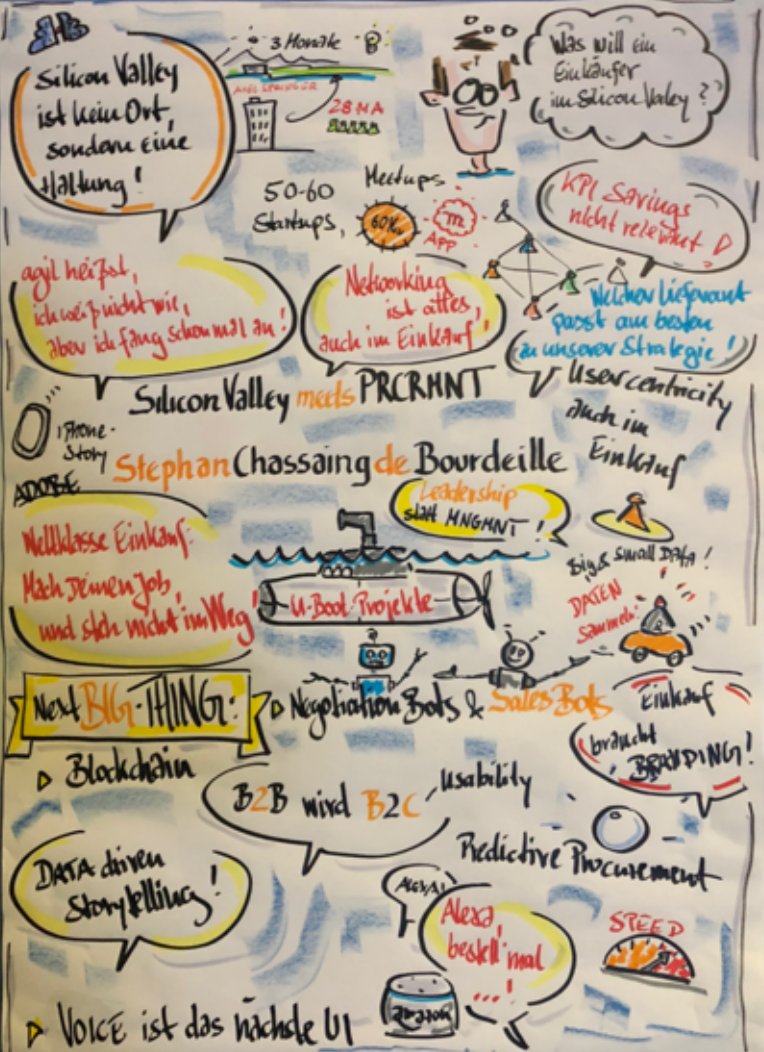 Silicon Valley
ist kein Ort,
sondern eine
Haltung!
3 Monate
AXEL SPRINGER
28 MA
Was will ein
Einkäufer
im Silicon Valley?
50-60
Startups,
Meetups
60K
m
APP
KPI Savings
nicht relevant!
agil heißt,
ich weiß nicht wie,
aber ich fang schon mal an!
Networking
ist alles,
auch im Einkauf!
Welcher Lieferant
passt am besten
zu unserer Strategie!
Silicon Valley meets PRCRMNT
User centricity
auch im
Einkauf
iPhone-
Story
Stephan Chassaing de Bourdeille
ADOBE
Leadership
statt MNGMNT!
Weltklasse Einkauf:
Mach Deinen Job,
und steh nicht im Weg!
U-Boot-Projekte
Big & Small DATA!
DATEN
sammeln
Next BIG-THING:
Negotiation Bots & Sales Bots
Einkauf
braucht
BRANDING!
Blockchain
B2B wird B2C
Usability
Predictive Procurement
DATA driven
Storytelling!
ALEXA!
Alexa,
bestell' mal
...!
SPEED
amazon
VOICE ist das nächste UI